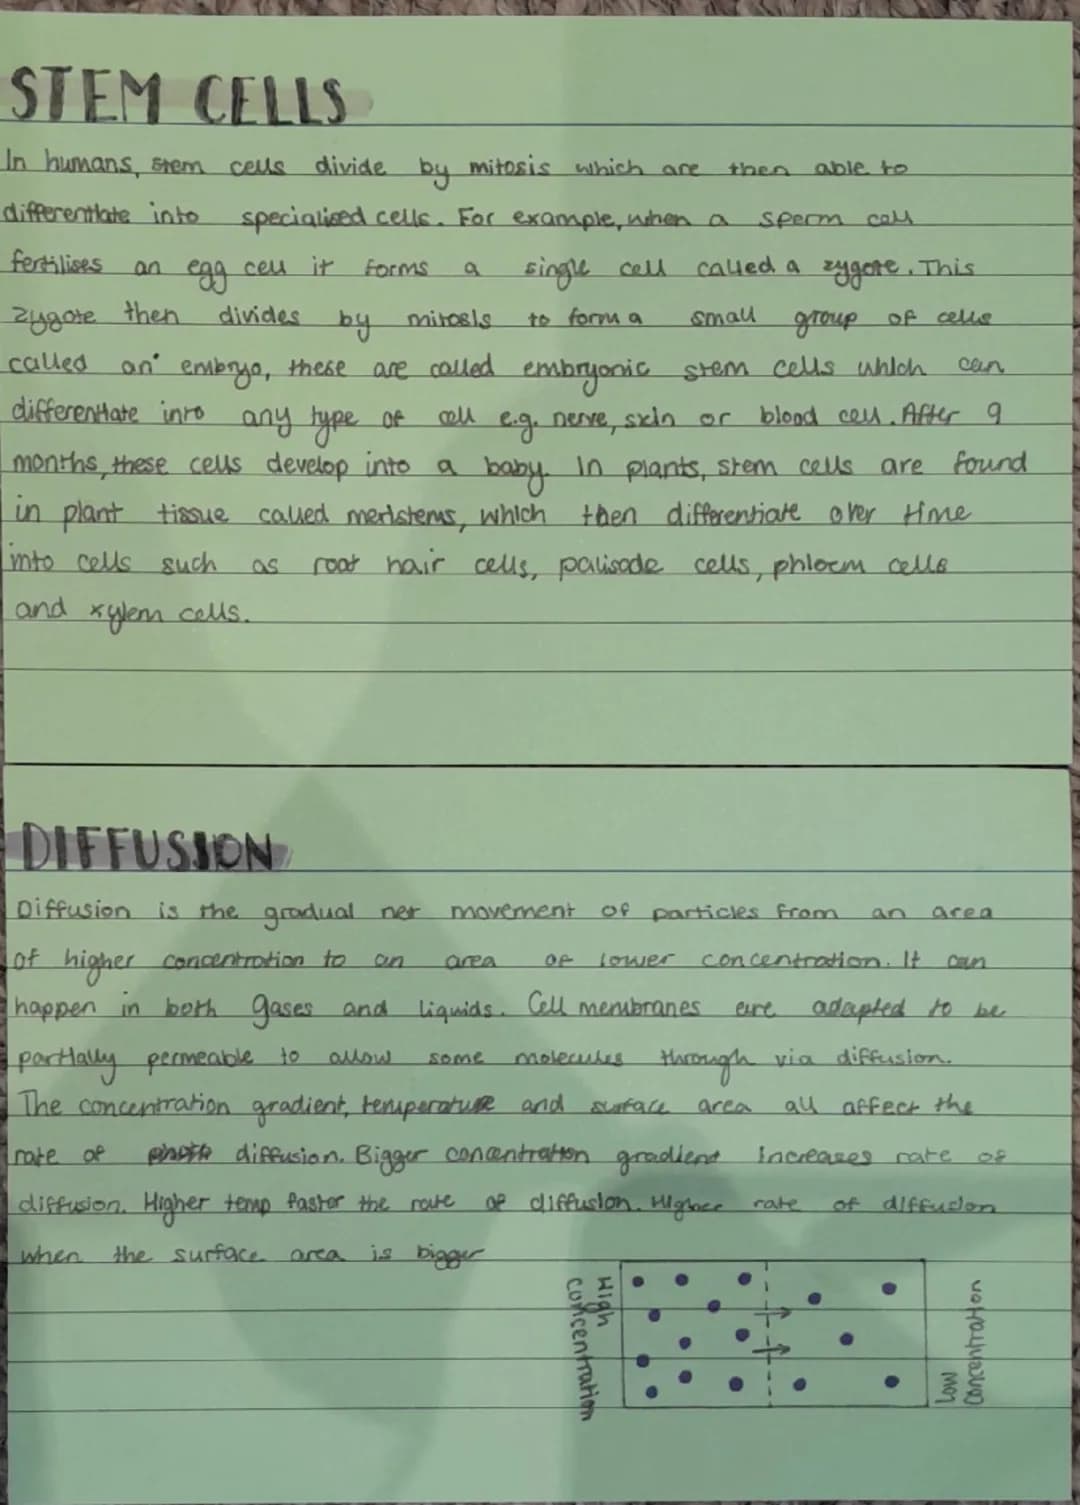 STEM CELLS
In humans, stem cells divide by mitosis which are then able to
differentiate into specialised cells. For example, when a sperm cell
fertilises an egg cell it forms a single cell called a zygote. This
zygote then divides by mitosis to form a small group of cells
called an embryo, these are called embryonic stem cells which can
differentiate into any type of cell e.g. nerve, skin or blood cell. After 9
months, these cells develop into a baby. In plants, stem cells are found
in plant tissue called meristems, which then differentiate over time
into cells such as root hair cells, palisade cells, phloem cells
and xylem cells.
DIFFUSION
Diffusion is the gradual net movement of particles from an area
of higher concentration to an area of lower concentration. It can
happen in both gases and liquids. Cell membranes are adapted to be
partially permeable to allow some molecules through via diffusion.
The concentration gradient, temperature and surface area all affect the
rate of diffusion. Bigger concentration gradient increases rate of
diffusion. Higher temp faster the rate of diffusion. Higher rate of diffusion
when the surface area is bigger
High
concentration
Low
concentration